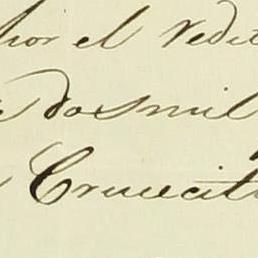 por el redit
dos mil
Crucecita